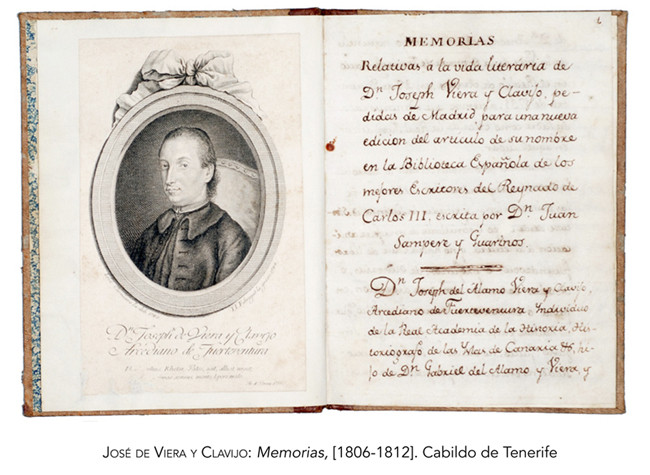 Dn Joseph de Viera y Clavijo
Arcediano de Fuerteventura
MEMORIAS
Relativas á la vida literaria de
Dn Joseph Viera y Clavijo, pe-
didas de Madrid, para una nueva
edicion del articulo de su nombre
en la Biblioteca Española de los
mejores Escritores del Reynado de
Carlos III, escrita por Dn Juan
Sempere y Guarinos.
Dn Joseph del Alamo Viera y Clavijo,
Arcediano de Fuerteventura, Individuo
de la Real Academia de la Historia, His-
toriografo de las Yslas de Canaria &, hi-
jo de Dn Gabriel del Alamo y Viera y
JOSÉ DE VIERA Y CLAVIJO: Memorias, [1806-1812]. Cabildo de Tenerife